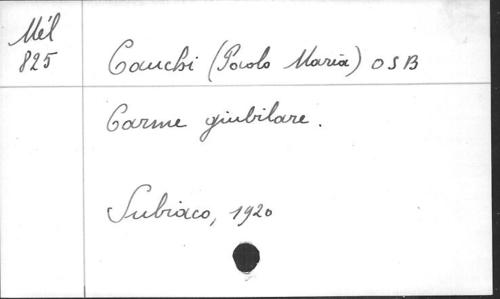 Mél
825
Cauchi (Paolo Maria) OSB
Carme giubilare.
Subiaco, 1920